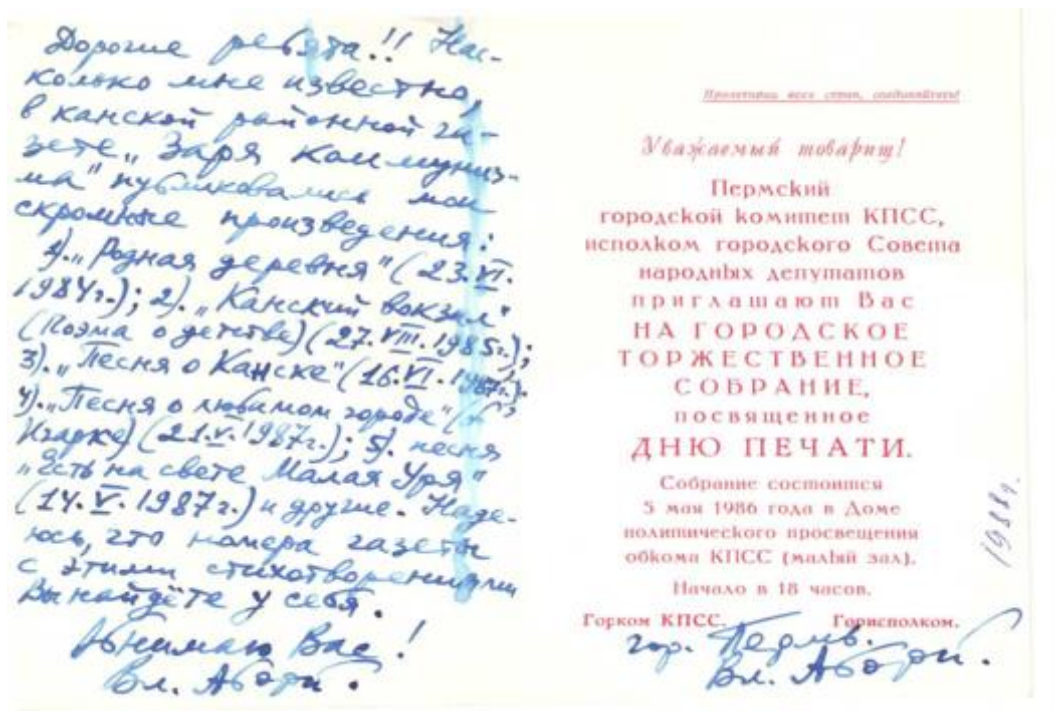 Дорогие ребята!! Нас-
колько мне известно,
в канской районной га-
зете „Заря коммуниз-
ма" публиковались мои
скромные произведения:
1). „Родная деревня" (23.VI.
1984г.); 2). „Канский вокзал"
(Поэма о детстве) (27.VIII.1985г.);
3). „Песня о Канске" (16.VI.1987г.);
4). „Песня о любимом городе" (
Игарке) (21.V.1987г.); 5). песня
„Есть на свете Малая Уря"
(14.V.1987г.) и другие. Наде-
юсь, что номера газеты
с этими стихотворениями
Вы найдёте у себя.
Обнимаю Вас!
Вл.
Пролетарии всех стран, соединяйтесь!
Уважаемый товарищ!
Пермский
городской комитет КПСС,
исполком городского Совета
народных депутатов
приглашают Вас
НА ГОРОДСКОЕ
ТОРЖЕСТВЕННОЕ
СОБРАНИЕ,
посвященное
ДНЮ ПЕЧАТИ.
Собрание состоится
5 мая 1986 года в Доме
политического просвещения
обкома КПСС (малый зал).
Начало в 18 часов.
Горком КПСС. Горисполком.
гор. Пермь.
Вл.
1988г.